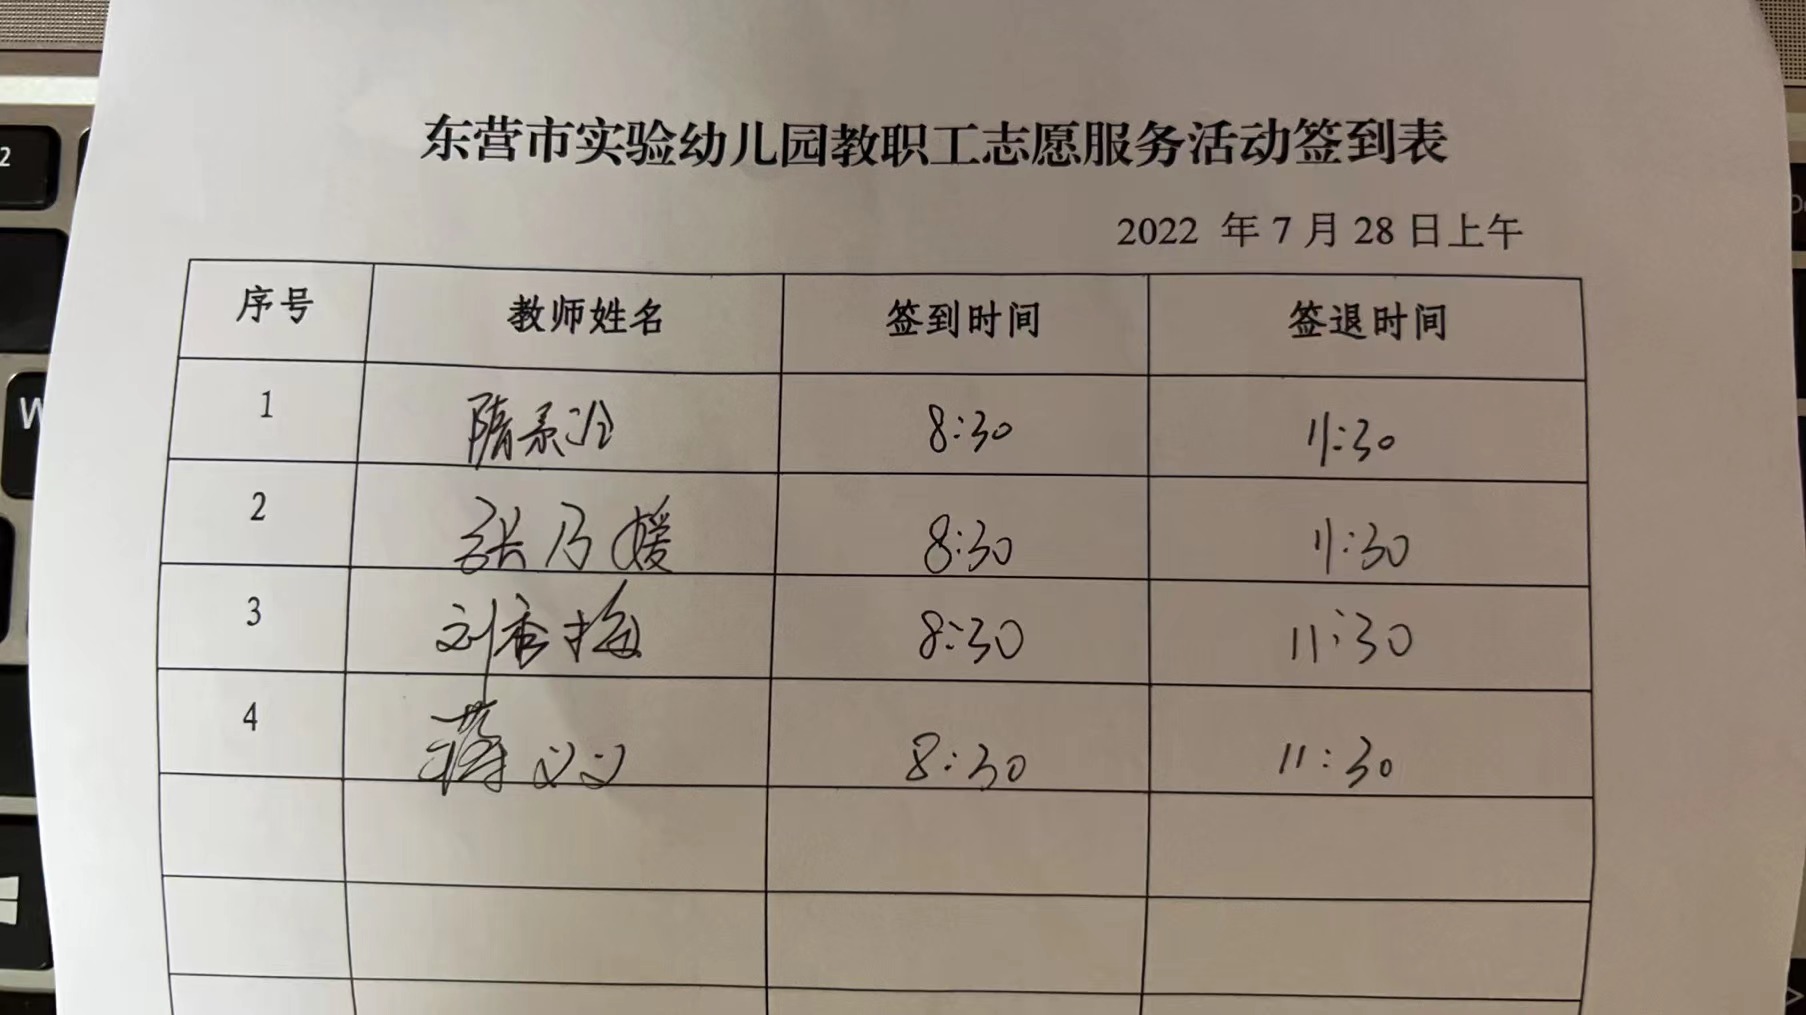 东营市实验幼儿园教职工志愿服务活动签到表
2022 年 7 月 28 日上午
序号 教师姓名 签到时间 签退时间
1 隋景 8:30 11:30
2 张乃媛 8:30 11:30
3 刘香梅 8:30 11:30
4 蒋义义 8:30 11:30
2
W